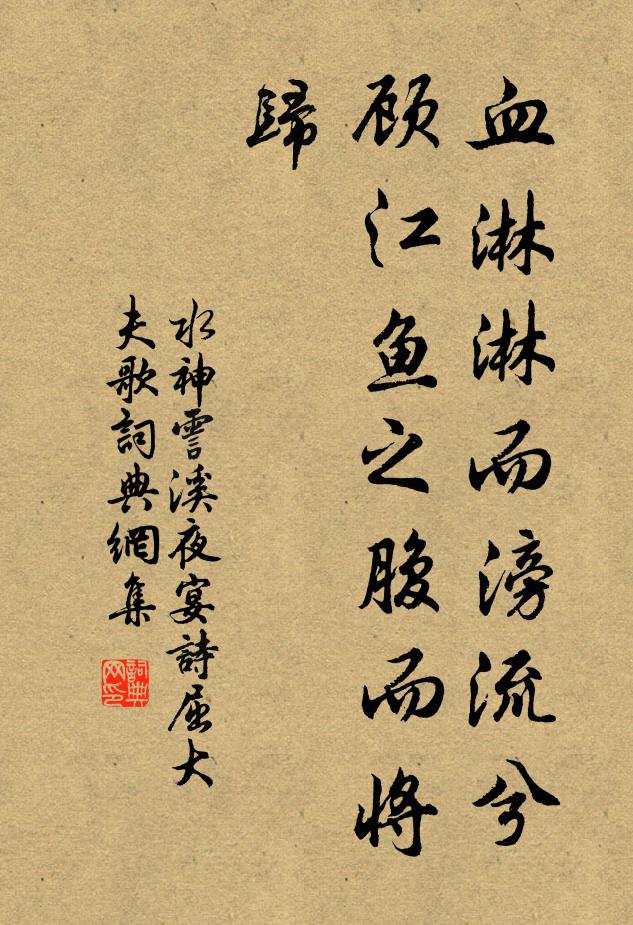 血淋淋而滂流兮
顾江鱼之腹而将
歸
水神霅溪夜宴詩屈大
夫歌詞典網集
詞典网印